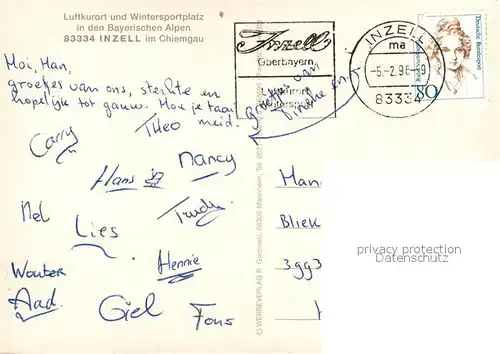 Luftkurort und Wintersportplatz
in den Bayerischen Alpen
83334 INZELL im Chiemgau
Moi, Han,
groetjes van ons, sterkte en
hopelijk tot gauw. Hou je taai
meid.
Groetjes van
Vinène en
Carry
THeo
Hans
Nancy
Nel
Lies
Trudy
Wouter
Hennie
Aad.
Giel
Fons
Inzell
Oberbayern
Luftkurort
Wintersport
INZELL
ma
-5.-2.96-9
83334
Deutsche Bundespost
80
Man
Bliek
3gg3
privacy protection
Datenschutz
(C) WERBEVERLAG R. Gominski, 68305 Mannheim, Tel.